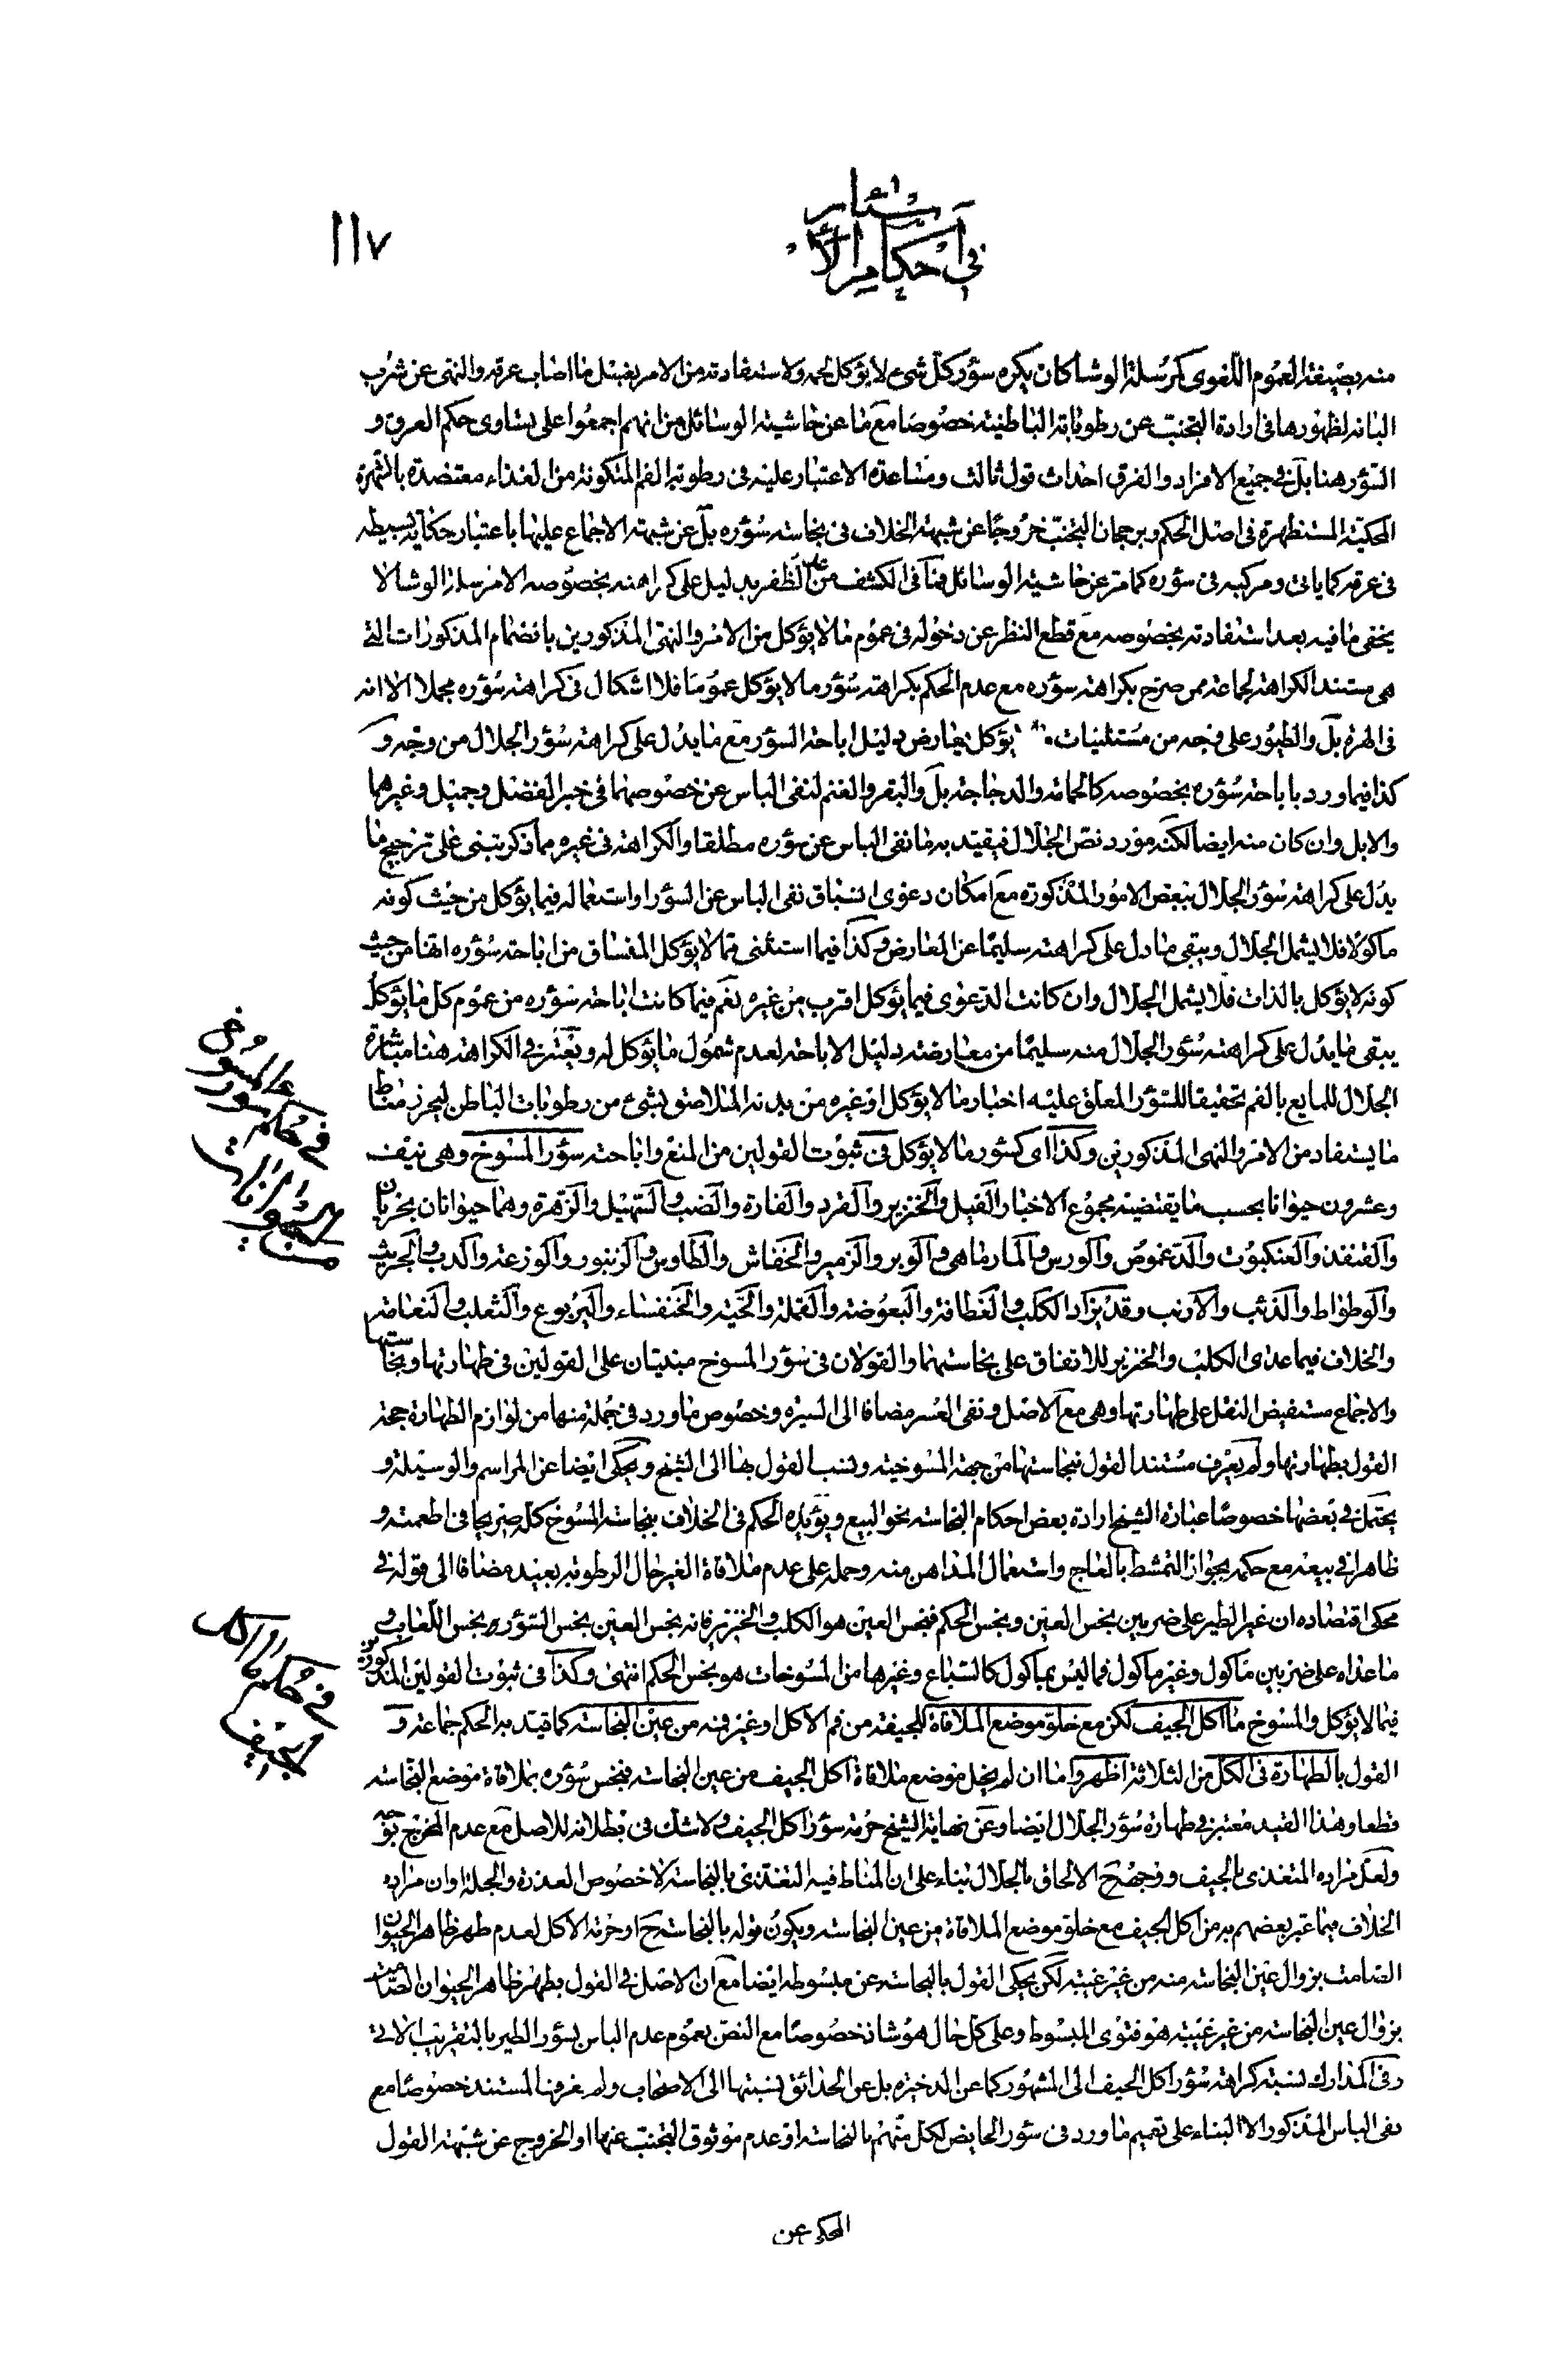 في أحكام الأسئار
١١٧
منه بصيغة العموم اللغوي كمرسلة الوشا كان يكره سؤر كل شيء لا يؤكل لحمه ولاستفادته من الامر بغسل ما اصاب عرقه والنهى عن شرب
البانه لظهورها في ارادة التجنب عن رطوباته الباطنية خصوصا مع ما عن حاشية الوسائل من انهم اجمعوا على تساوى حكم العرق و
السؤر هنا بل في جميع الافراد والفرق احداث قول ثالث ومساعدة الاعتبار عليه في رطوبة الفم المتكونة من الغذاء معتضدة بالشهرة
المحكية المستظهرة في اصل الحكم وبرجحان التجنب خروجا عن شبهة الخلاف في نجاسة سؤره بل عن شبهة الاجماع عليها باعتبار حكاية بسيطه
في عرقه كما ياتى ومركبه في سؤره كما مر عن حاشية الوسائل فما في الكشف من عدم الظفر بدليل على كراهته بخصوصه الا مرسلة الوشا لا
يخفى ما فيه بعد استفادته بخصوصه مع قطع النظر عن دخوله في عموم ما لا يؤكل من الامر والنهى المذكورين بانضمام المذكورات التي
هى مستند الكراهة لجماعة ممن صرح بكراهة سؤره مع عدم الحكم بكراهة سؤر ما لا يؤكل عموما فلا اشكال في كراهة سؤره مجملا الا انه
في الهرة بل والطيور على وجه من مستثنيات يؤكل يعارض دليل اباحة السؤر مع ما يدل على كراهة سؤر الجلال من وجه و
كذا فيما ورد باباحة سؤره بخصوصه كالحمامة والدجاجة بل والبقر والغنم لنفى الباس عن خصوصهما في خبر الفضل وجميل وغيرهما
والابل وان كان منه ايضا لكنه مورد نص الجلال فيقيد به ما نفى الباس عن سؤره مطلقا والكراهة في غيره مما ذكر تبنى على ترجيح ما
يدل على كراهة سؤر الجلال ببعض الامور المذكورة مع امكان دعوى انسباق نفى الباس عن السؤر او استعماله فيما يؤكل من حيث كونه
ماكولا فلا يشمل الجلال ويبقى ما دل على كراهته سليما عن المعارض وكذا فيما استثنى مما لا يؤكل المنساق من اباحة سؤره انها من حيث
كونه لا يؤكل بالذات فلا يشمل الجلال وان كانت الدعوى فيما يؤكل اقرب من غيره نعم فيما كانت اباحة سؤره من عموم كل ما يؤكل
يبقى ما يدل على كراهة سؤر الجلال منه سليما من معارضة دليل الاباحة لعدم شمول ما يؤكل له ويعتبر في الكراهة هنا مباشرة
الجلال للمايع بالفم تحقيقا للسؤر المعلق عليه اخبار ما لا يؤكل او غيره من بدنه الملاصق بشيء من رطوبات الباطن ليحرز مناط
ما يستفاد من الامر والنهى المذكورين وكذا اى كسؤر ما لا يؤكل في ثبوت القولين من المنع واباحته سؤر المسوخ وهى نيف
وعشرون حيوانا بحسب ما يقتضيه مجموع الاخبار الفيل والخنزير والقرد والفارة والضب والسهيل والزهرة وهما حيوانان بحريان
والقنفذ والعنكبوت والدعموص والورس والمارماهى والوبر والزمير والخفاش والطاوس والزنبور والوزغة والدب والجريث
والوطواط والذئب والارنب وقد يزاد الكلب والغطافة والبعوضة والقملة والحية والخنفساء واليربوع والثعلب والنعامة
والخلاف فيما عدى الكلب والخنزير للاتفاق على نجاستهما والقولان في سؤر المسوخ مبنيان على القولين في طهارتها ونجاستها
والاجماع مستفيض النقل على طهارتها وهى مع الاصل ونفى العسر مضافا الى السيرة وخصوص ما ورد في جملة منها من لوازم الطهارة حجة
القول بطهارتها ولم يعرف مستند القول بنجاستها من جهة المسوخية ونسب القول بها الى الشيخ ويحكى ايضا عن المراسم والوسيلة و
يحتمل في بعضها خصوصا عبارة الشيخ ارادة بعض احكام النجاسة نحو البيع ويؤيده الحكم في الخلاف بنجاسة المسوخ كله صريحا في اطعمته و
ظاهرا في بيعه مع حكمه بجواز التمشط بالعاج واستعمال المداهن منه وحمله على عدم ملاقاة الغير حال الرطوبة بعيد مضافا الى قوله في
محكى اقتصاده ان غير الطير على ضربين نجس العين ونجس الحكم فنجس العين هو الكلب والخنزير فانه نجس العين نجس السؤر نجس اللعاب و
ما عداه على ضربين ماكول وغير ماكول فما ليس بماكول كالسباع وغيرها من المسوخات هو نجس الحكم انتهى وكذا في ثبوت القولين المذكورين
فيما لا يؤكل والمسوخ ما اكل الجيف لكن مع خلو موضع الملاقاة للجيفة من فم الاكل او غير فمه من عين النجاسة كما قيد به الحكم جماعة و
القول بالطهارة في الكل من الثلاثة اظهر واما ان لم يخل موضع ملاقاة اكل الجيف من عين النجاسة فينجس سؤره بملاقاة موضع النجاسة
قطعا وهذا القيد معتبر في طهارة سؤر الجلال ايضا وعن نهاية الشيخ حرمة سؤر اكل الجيف ولا شك في بطلانه للاصل مع عدم المخرج بوجه
ولعل مراده المتغذى بالجيف ووجه صح الالحاق بالجلال بناء على ان المناط فيه التغذى بالنجاسة لا خصوص العذرة والجلة او ان مراده
الخلاف فيما عبر بعضهم به من اكل الجيف مع خلو موضع الملاقاة من عين النجاسة ويكون قوله بالنجاسة ح او حرمة الاكل لعدم طهر ظاهر الحيوان
الصامت بزوال عين النجاسة منه من غير غيبة لكن يحكى القول بالنجاسة عن مبسوطه ايضا مع ان الاصل في القول بطهر ظاهر الحيوان الصامت
بزوال عين النجاسة من غير غيبة هو فتوى المبسوط وعلى كل حال هو شاذ خصوصا مع النص بعموم عدم الباس بسؤر الطير بالتقريب الاتى
وفى المدارك نسبة كراهة سؤر اكل الجيف الى المشهور كما عن الذخيرة بل عن الحدائق نسبتها الى الاصحاب ولم يعرفنا المستند خصوصا مع
نفى الباس المذكور الا البناء على تعميم ما ورد في سؤر الحايض لكل متهم بالنجاسة او عدم موثوق التجنب عنها او الخروج عن شبهة القول
في حكم سؤر
في حكم ما اكل
الجيف
المحكى عن